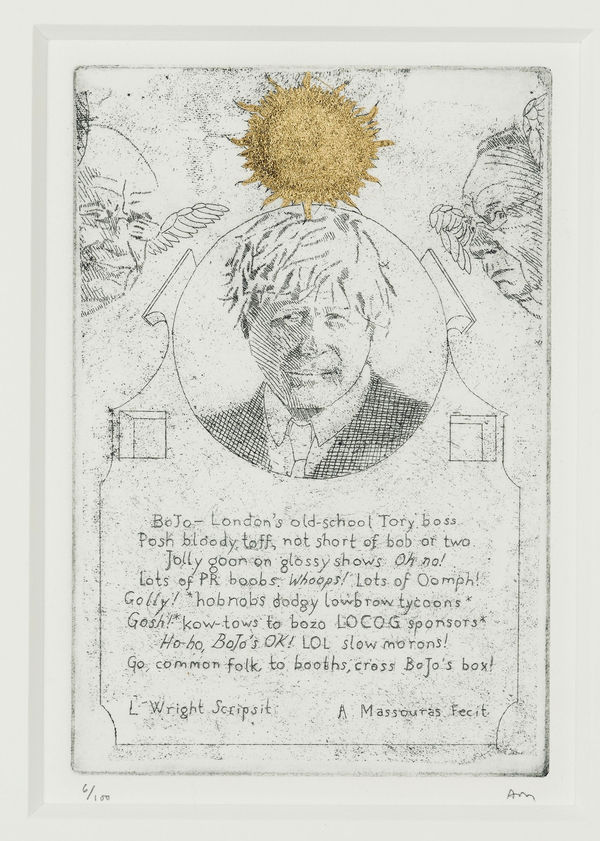 BoJo – London's old-school Tory boss.
Posh bloody toff, not short of bob or two.
Jolly goon on glossy shows. Oh no!
Lots of PR boobs. Whoops! Lots of Oomph!
Golly! *hobnobs dodgy lowbrow tycoons*
Gosh! *kow-tows to bozo LOCOG sponsors*
Ho-ho, BoJo's OK! LOL slow morons!
Go, common folk, to booths, cross BoJo's box!
L Wright Scripsit
A Massouras Fecit
6/100
AM